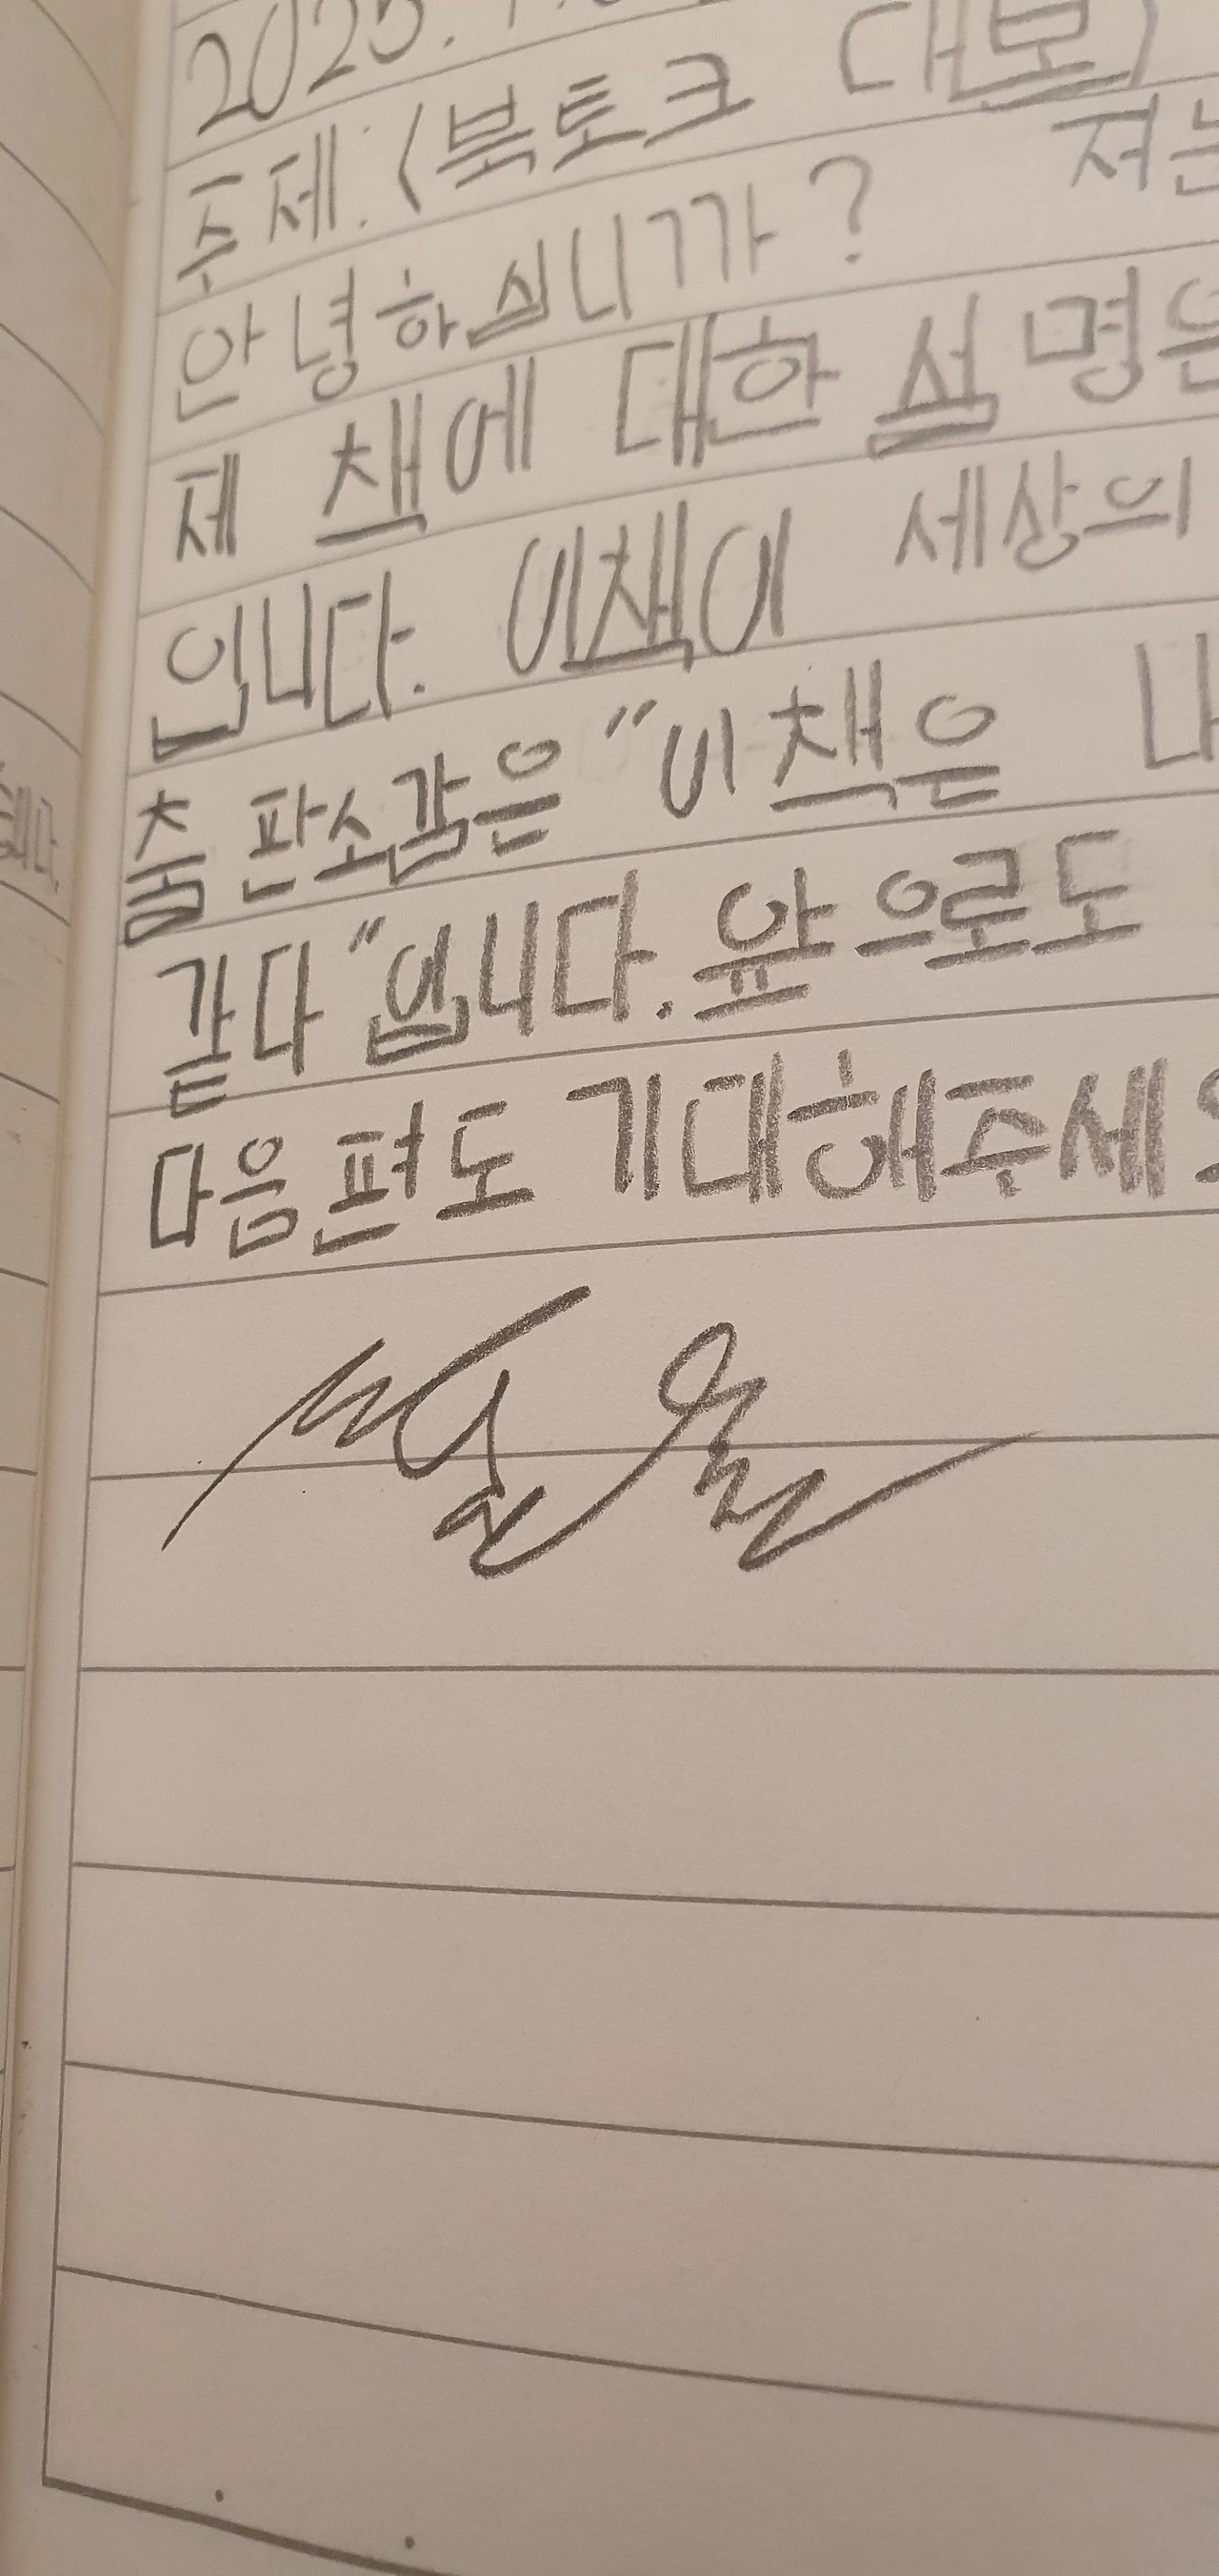 2025.
주제:(북토크 대본)
안녕하십니까? 저는
제 책에 대한 설명은
입니다. 이책이 세상의
출판소감은 "이 책은 나
같다"입니다. 앞으로도
다음편도 기대해주세요